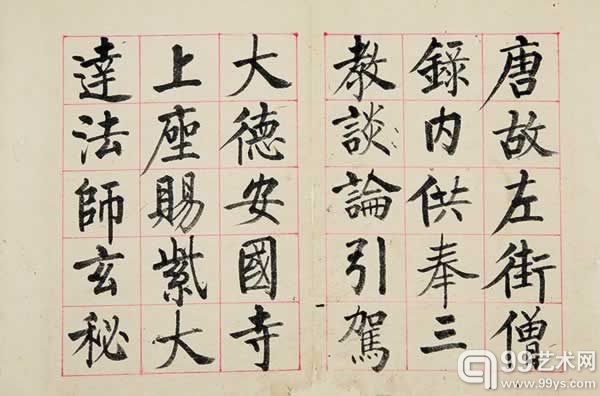 唐故左街僧
錄内供奉三
教談論引駕
大德安國寺
上座賜紫大
達法師玄秘
99艺术网
www.99ys.com